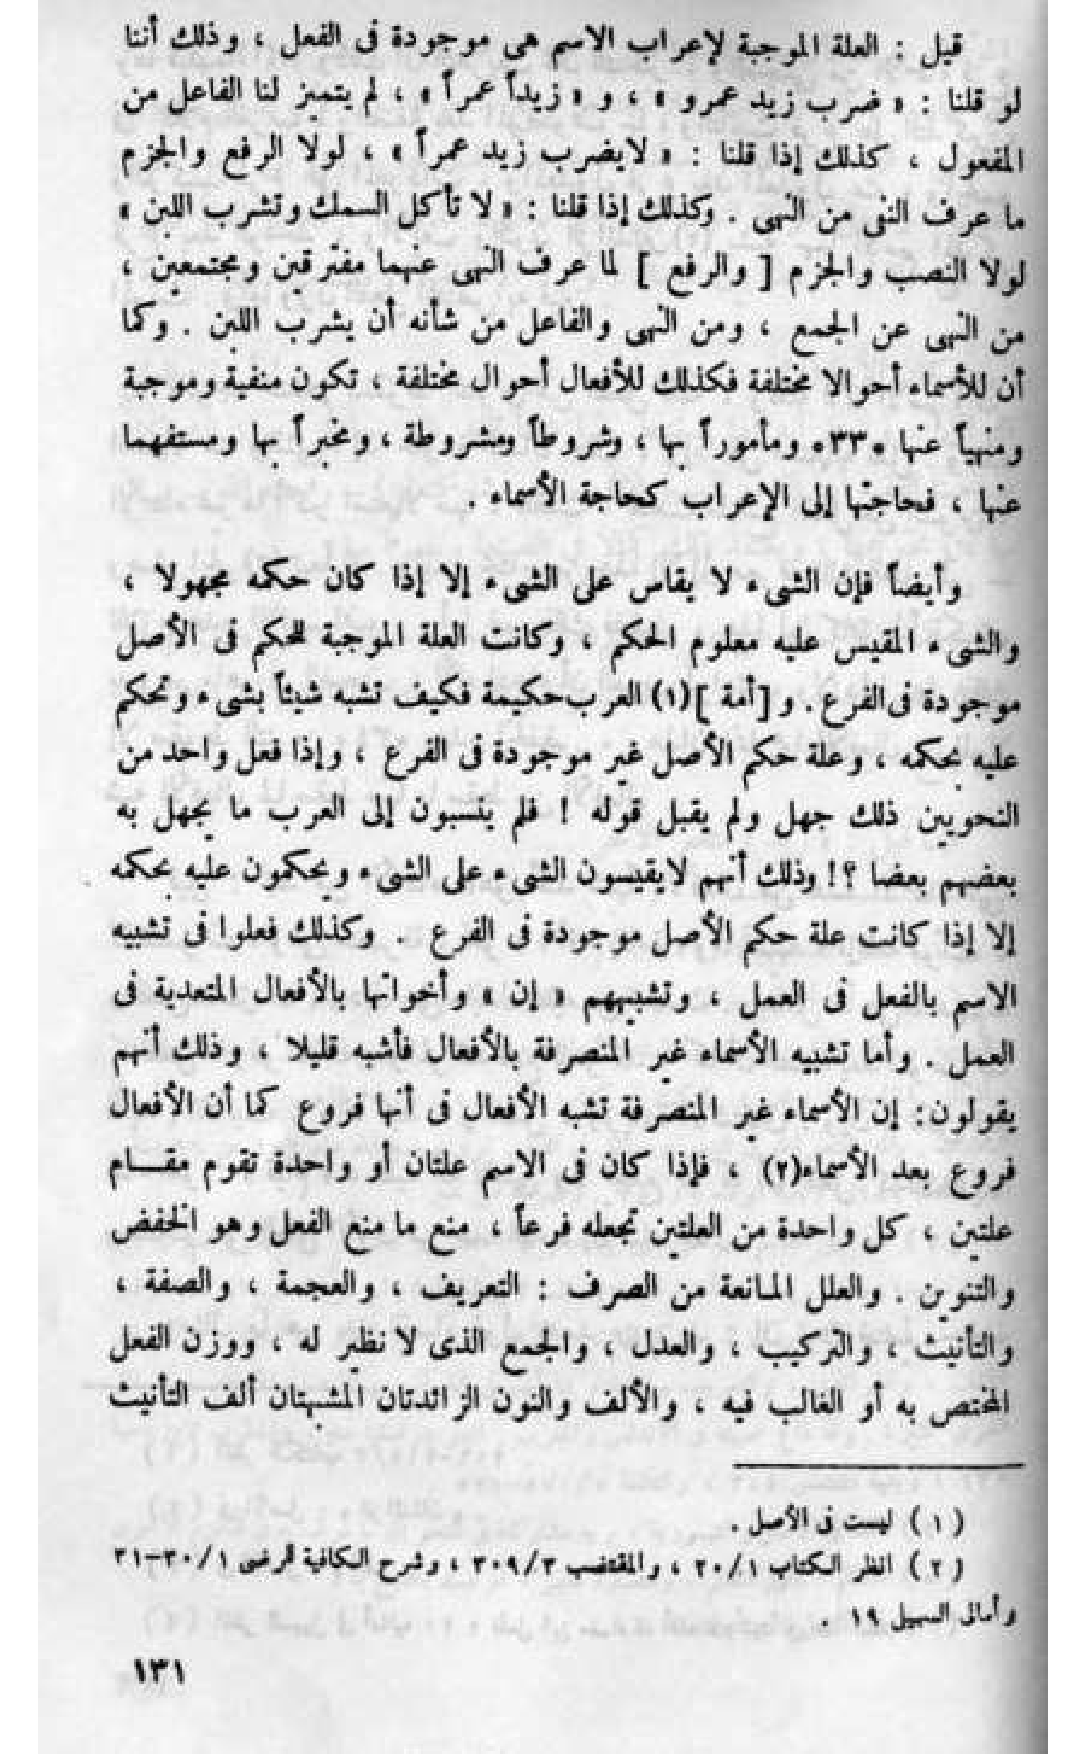 قيل : العلة الموجبة لإعراب الاسم هى موجودة فى الفعل ، وذلك أننا
لو قلنا : « ضرب زيد عمرو » ، و « زيداً عمراً » ، لم يتميز لنا الفاعل من
المفعول ، كذلك إذا قلنا : « لايضرب زيد عمراً » ، لولا الرفع والجزم
ما عرف النفى من النهى . وكذلك إذا قلنا : « لا تأكل السمك وتشرب اللبن »
لولا النصب والجزم [ والرفع ] لما عرف النهى عنهما مفترقين ومجتمعين ،
من النهى عن الجمع ، ومن النهى والفاعل من شأنه أن يشرب اللبن . وكما
أن للأسماء أحوالا مختلفة فكذلك للأفعال أحوال مختلفة ، تكون منفية وموجبة
ومنهياً عنها *٣٣* ومأموراً بها ، وشروطاً ومشروطة ، ومخبراً بها ومستفهما
عنها ، فحاجتها إلى الإعراب كحاجة الأسماء .
وأيضاً فإن الشىء لا يقاس على الشىء إلا إذا كان حكمه مجهولا ،
والشىء المقيس عليه معلوم الحكم ، وكانت العلة الموجبة للحكم فى الأصل
موجودة فى الفرع . و [ أمة ] (١) العرب حكيمة فكيف تشبه شيئاً بشىء وتحكم
عليه بحكمه ، وعلة حكم الأصل غير موجودة فى الفرع ، وإذا فعل واحد من
النحويين ذلك جهل ولم يقبل قوله ! فلم ينسبون إلى العرب ما يجهل به
بعضهم بعضا ؟! وذلك أنهم لايقيسون الشىء على الشىء ويحكمون عليه بحكمه
إلا إذا كانت علة حكم الأصل موجودة فى الفرع . وكذلك فعلوا فى تشبيه
الاسم بالفعل فى العمل ، وتشبيههم « إن » وأخواتها بالأفعال المتعدية فى
العمل . وأما تشبيه الأسماء غير المنصرفة بالأفعال فأشبه قليلا ، وذلك أنهم
يقولون : إن الأسماء غير المنصرفة تشبه الأفعال فى أنها فروع كما أن الأفعال
فروع بعد الأسماء(٢) ، فإذا كان فى الاسم علتان أو واحدة تقوم مقــام
علتين ، كل واحدة من العلتين تجعله فرعاً ، منع ما منع الفعل وهو الخفض
والتنوين . والعلل المانعة من الصرف : التعريف ، والعجمة ، والصفة ،
والتأنيث ، والتركيب ، والعدل ، والجمع الذى لا نظير له ، ووزن الفعل
المختص به أو الغالب فيه ، والألف والنون الزائدتان المشبهتان ألف التأنيث
( ١ ) ليست فى الأصل .
( ٢ ) انظر الكتاب ٢٠/١ ، والمقتضب ٣٠٩/٣ ، وشرح الكافية للرضى ٣٠/١-٣١
وأمالى السهيلى ١٩ .
١٣١